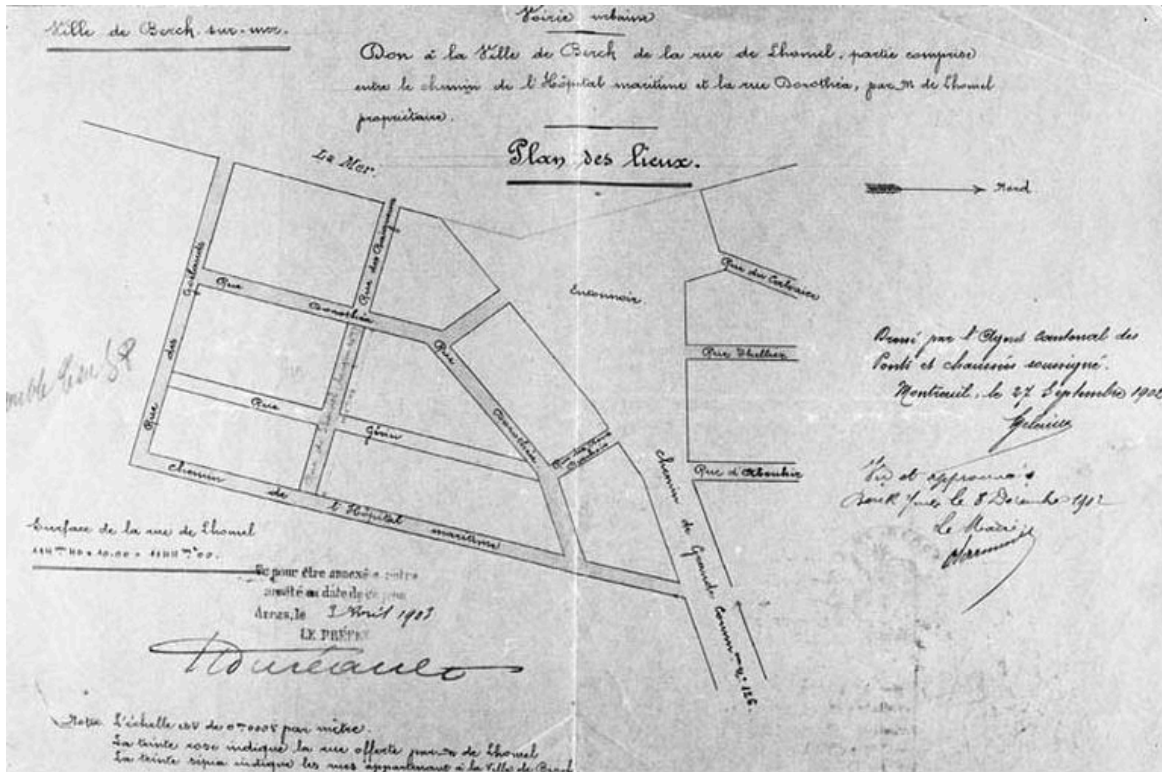 Ville de Berck-sur-mer.
Voirie urbaine
Don à la Ville de Berck de la rue de Lhomel, partie comprise
entre le chemin de l'Hôpital maritime et la rue Dorothéa, par M. de Lhomel
propriétaire.
Plan des lieux.
La Mer.
Nord
Rue des Baigneurs
Rue du Calvaire
Entonnoir
Rue des
Rue Dorothéa
Rue Dorothéa
Rue Thellier
Rue Génin
Rue d'Aboukir
chemin de l'Hôpital maritime
Chemin de Grande Common n° 126
Dressé par l'Agent cantonal des
Ponts et chaussées soussigné.
Montreuil, le 27 Septembre 1902
Vu et approuvé
le 8 Décembre 1902
Le Maire
Surface de la rue de Lhomel
Vu pour être annexé à notre
arrêté en date de ce jour
Arras, le 3 Avril 1903
LE PRÉFET
Nota: L'échelle est de 0m0005 par mètre.
La teinte rose indique la rue offerte par M. de Lhomel
La teinte sépia indique les rues appartenant à la Ville de Berck